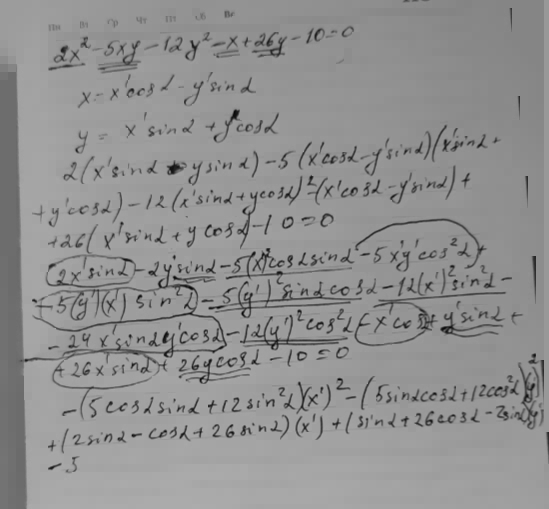 Пн Вт Ср Чт Пт Сб Вс
2x² - 5xy - 12y² - x + 26y - 10 = 0
x = x'cosα - y'sinα
y = x'sinα + y'cosα
2(x'sinα ysinα) - 5(x'cosα - y'sinα)(x'sinα +
+ y'cosα) - 12(x'sinα + ycosα)² - (x'cosα - y'sinα) +
+ 26(x'sinα + ycosα) - 10 = 0
2x'sinα - 2y'sinα - 5(x')²cosαsinα - 5x'y'cos²α +
+ 5(y')(x')sin²α - 5(y')²sinαcosα - 12(x')²sin²α -
- 24x'sinαy'cosα - 12(y')²cos²α - x'cosα + y'sinα +
+ 26x'sinα + 26ycosα - 10 = 0
-(5cosαsinα + 12sin²α)(x')² - (5sinαcosα + 12cos²α)(y')²
+ (2sinα - cosα + 26sinα)(x') + (sinα + 26cosα - 2sinα)(y')
- 5